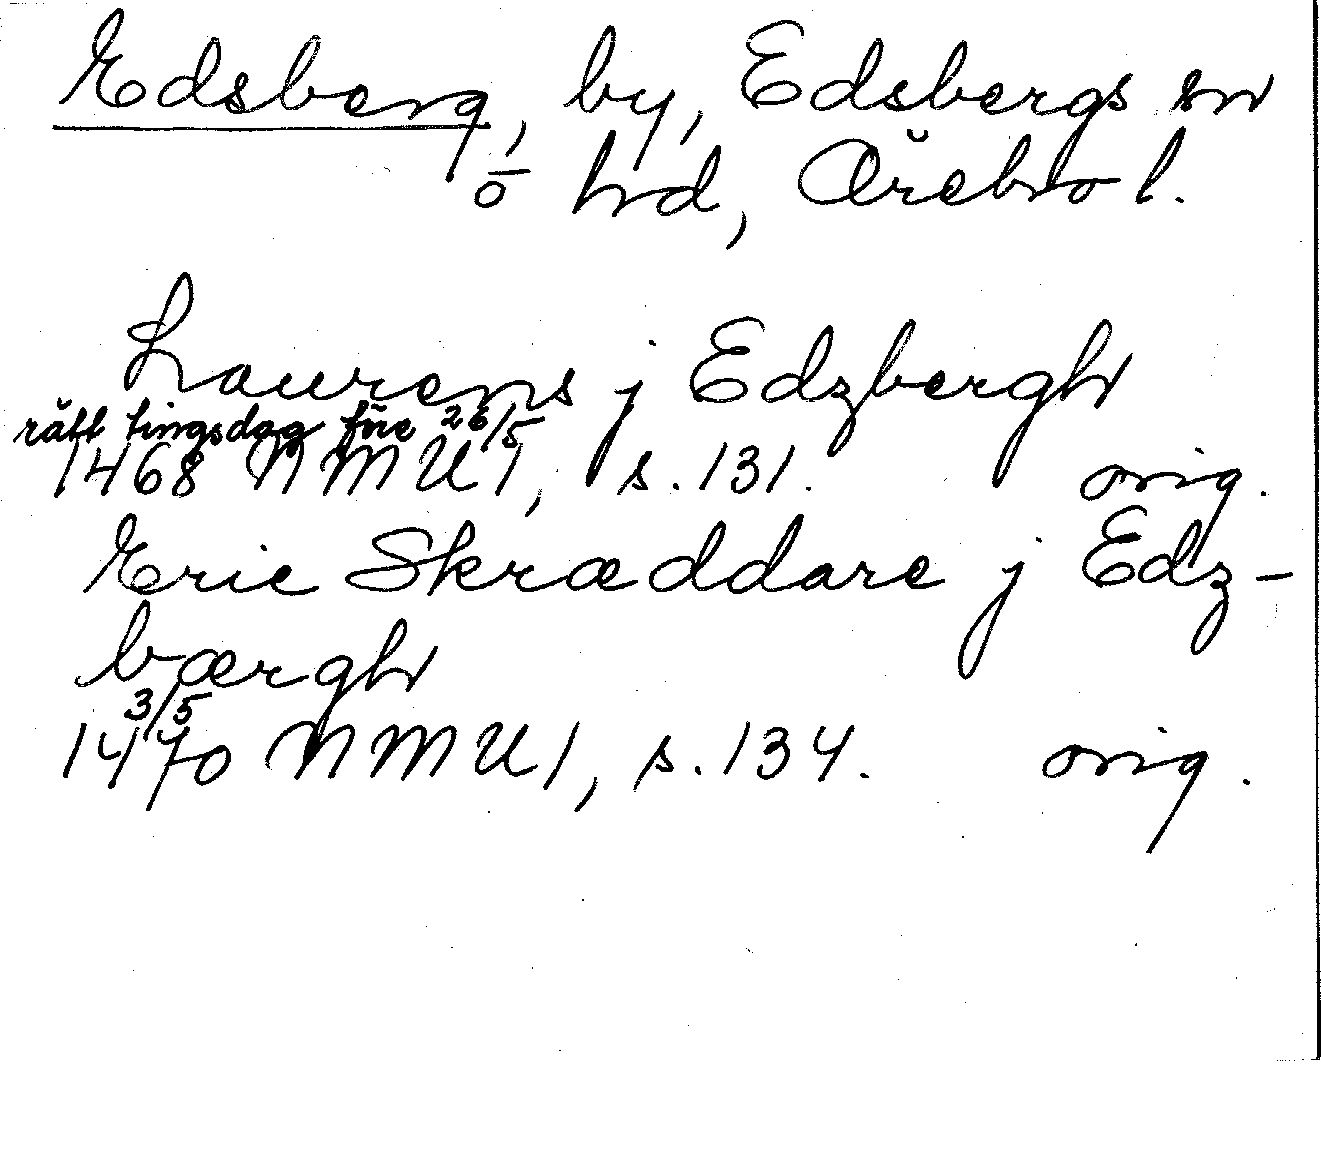 Edsberg, by, Edsbergs sn
o hd, Örebro l.
Laurens j Edzbergh
rätt tingsdag före 26/5
1468 NMU1, s. 131. orig.
Eric Skræddare j Edz-
bærgh
3/5
1470 NMU1, s. 134. orig.